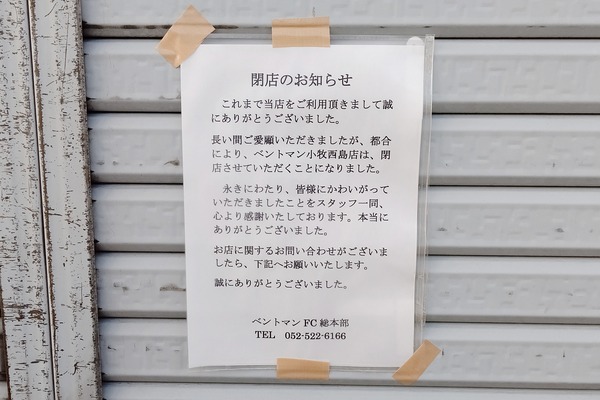 閉店のお知らせ
これまで当店をご利用頂きまして誠
にありがとうございました。
長い間ご愛顧いただきましたが、都合
により、ベントマン小牧西島店は、閉
店させていただくことになりました。
永きにわたり、皆様にかわいがって
いただきましたことをスタッフ一同、
心より感謝いたしております。本当に
ありがとうございました。
お店に関するお問い合わせがございま
したら、下記へお願いいたします。
誠にありがとうございました。
ベントマン FC 総本部
TEL 052-522-6166